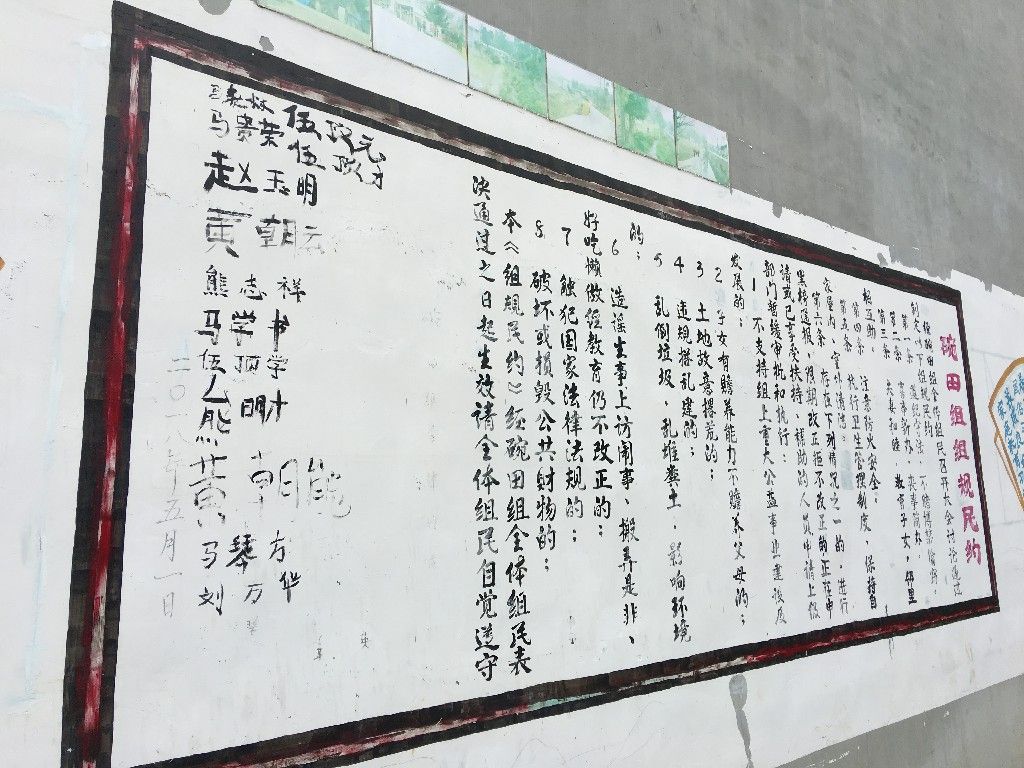 碗田组组规民约
经碗田组全体组民召开大会讨论通过
制定以下组规民约:
第一条 遵纪守法,不赌博禁偷窃。
第二条 喜事新办,丧事简办,
第三条 夫妻和睦 教育子女,邻里
相互助。
第四条 注意防火安全。
第五条 执行卫生管理制度,保持自
家屋内、室外清洁。
第六条 存在下列情况之一的,进行
黑榜通报,限期改正拒不改正的正在申
请或已享受扶持、补助的人员申请上级
部门暂缓审批和执行:
1 不支持组上重大公益事业建设及
发展的;
2 子女有赡养能力不赡养父母的;
3 土地故意撂荒的;
4 违规搭乱建的;
5 乱倒垃圾、乱堆粪土,影响环境
的;
6 造谣生事上访闹事、搬弄是非、
好吃懒做经教育仍不改正的;
7 触犯国家法律法规的;
8 破坏或损毁公共财物的;
本《组规民约》经碗田组全体组民表
决通过之日起生效请全体组民自觉遵守
伍 元
伍
马贵荣
赵玉明
黄朝元
熊志祥
马学书
伍 学
熊 明才
黄朝
马琴方
刘万华
二〇一八年五月一日